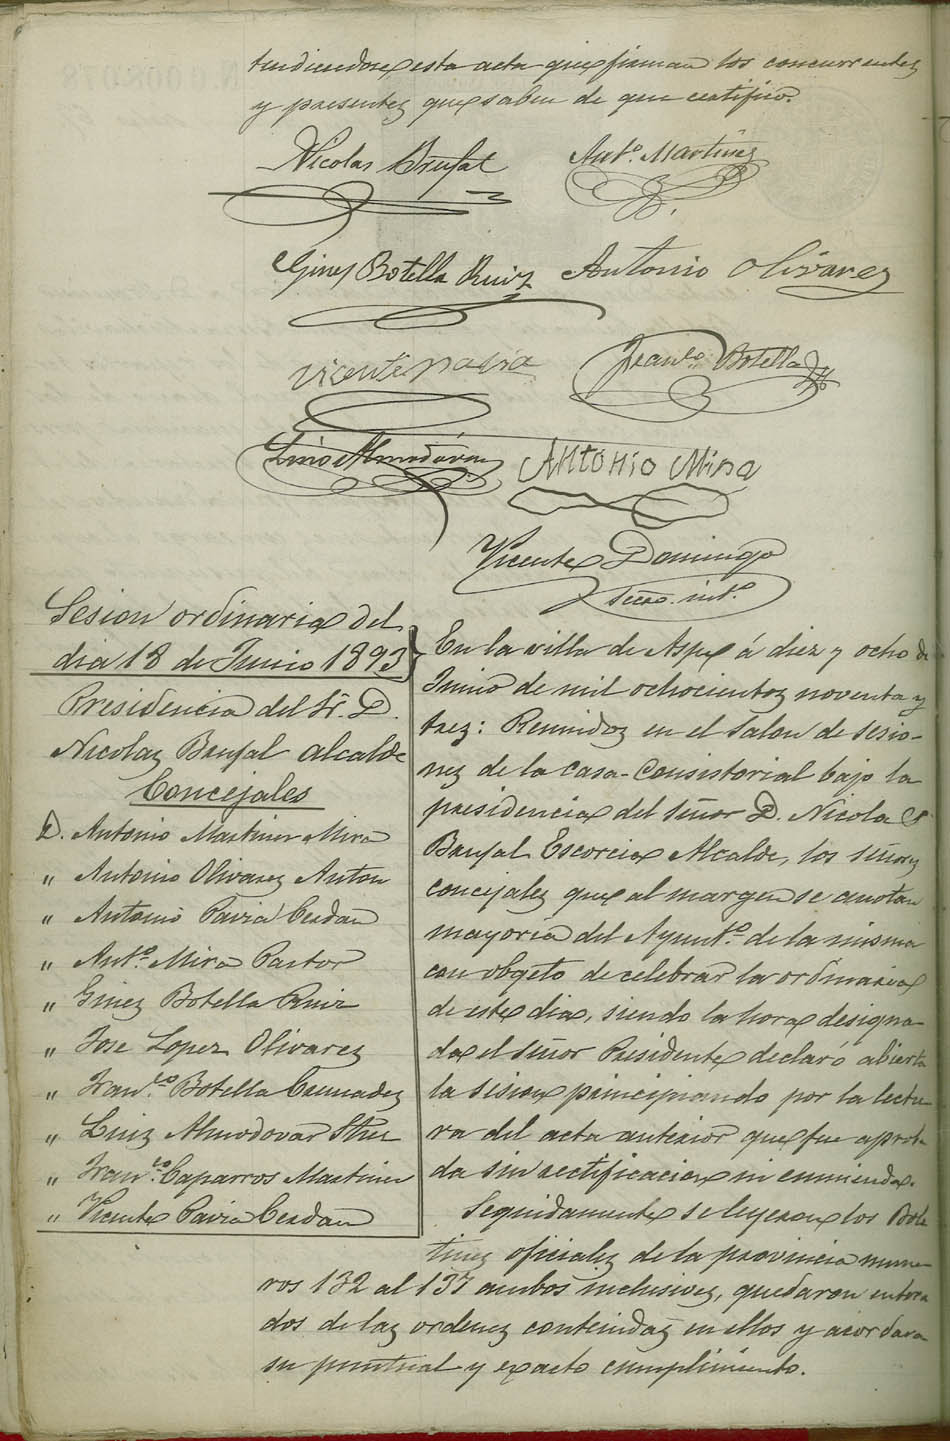 tendiendose esta acta que firman los concurrentes
y presentes que saben de que certifico.
Nicolas Brufal
Ant.º Martinez
Gines Botella Ruiz
Antonio Olivares
Vicente Pavia
Fran.co Botella
Luis Almodóvar
Antonio Mira
Vicente Domingo
Secro. int.º
Sesion ordinaria del
dia 18 de Junio 1893
Presidencia del Sr. D.
Nicolas Brufal Alcalde
Concejales
D. Antonio Martinez Mira
" Antonio Olivares Anton
" Antonio Pavia Cerdan
" Ant.º Mira Pastor
" Gines Botella Ruiz
" Jose Lopez Olivares
" Fran.co Botella
" Luis Almodovar
" Fran.co Caparros Martinez
" Vicente Pavia Cerdan
En la villa de Aspe á diez y ocho de
Junio de mil ochocientos noventa y
tres: Reunidos en el Salon de sesio-
nes de la Casa-Consistorial bajo la
presidencia del Señor D. Nicolas
Brufal Escorcia Alcalde, los señores
concejales que al margen se anotan
mayoria del Ayunt.º de la misma
con obgeto de celebrar la ordinaria
de este dia, siendo la hora designa-
da el Señor Presidente declaró abierta
la sesion principiando por la lectu-
ra del acta anterior que fue aproba-
da sin rectificacion ni enmienda.
Seguidamente se leyeron los Bole-
tines oficiales de la provincia nume-
ros 132 al 137 ambos inclusives, quedaron entera-
dos de las ordenes contenidas en ellos y acordaron
su puntual y exacto cumplimiento.